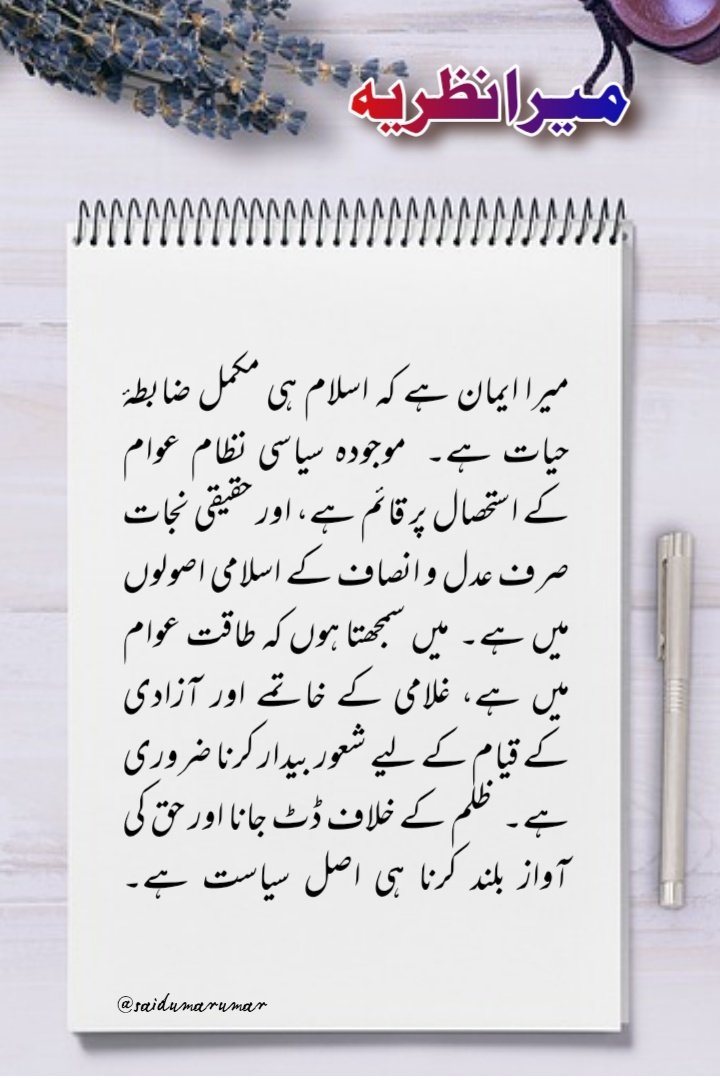 میرا نظریہ
میرا ایمان ہے کہ اسلام ہی مکمل ضابطۂ
حیات ہے۔ موجودہ سیاسی نظام عوام
کے استحصال پر قائم ہے، اور حقیقی نجات
صرف عدل و انصاف کے اسلامی اصولوں
میں ہے۔ میں سمجھتا ہوں کہ طاقت عوام
میں ہے، غلامی کے خاتمے اور آزادی
کے قیام کے لیے شعور بیدار کرنا ضروری
ہے۔ ظلم کے خلاف ڈٹ جانا اور حق کی
آواز بلند کرنا ہی اصل سیاست ہے۔
@saidumarumar